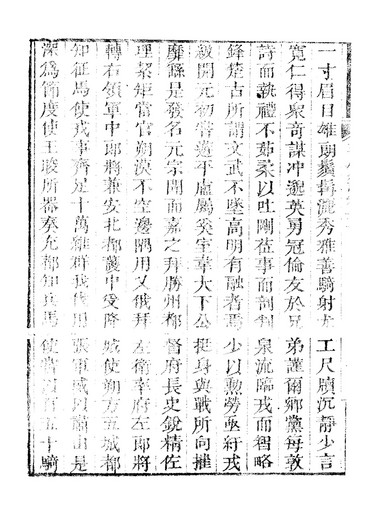 一寸眉目雄朗鬚髯灑秀雅善騎射尤工尺牘沉靜少言
寬仁得衆奇謀沖邈英勇冠倫友於兄弟謹爾鄉黨每敦
詩而執禮不茹柔以吐剛莅事而剖判泉流臨戎而智略
鋒楚古所謂文武不墜高明有融者焉少以勳勞亟紆戎
級開元初嘗遊平盧屬奚室韋大下公挺身與戰所向摧
靡繇是發名元宗聞而嘉之拜勝州都督府長史銳精佐
理絜矩當官朔漠不空邊隅用乂俄拜左衛率府左郎將
轉右領軍中郎將兼安北都護中受降城使朔方五城都
知征馬使戎事齊足十萬維群我伐用張軍威以肅由是
深爲節度使王晙所器奏充都知兵馬使嘗百五十騎